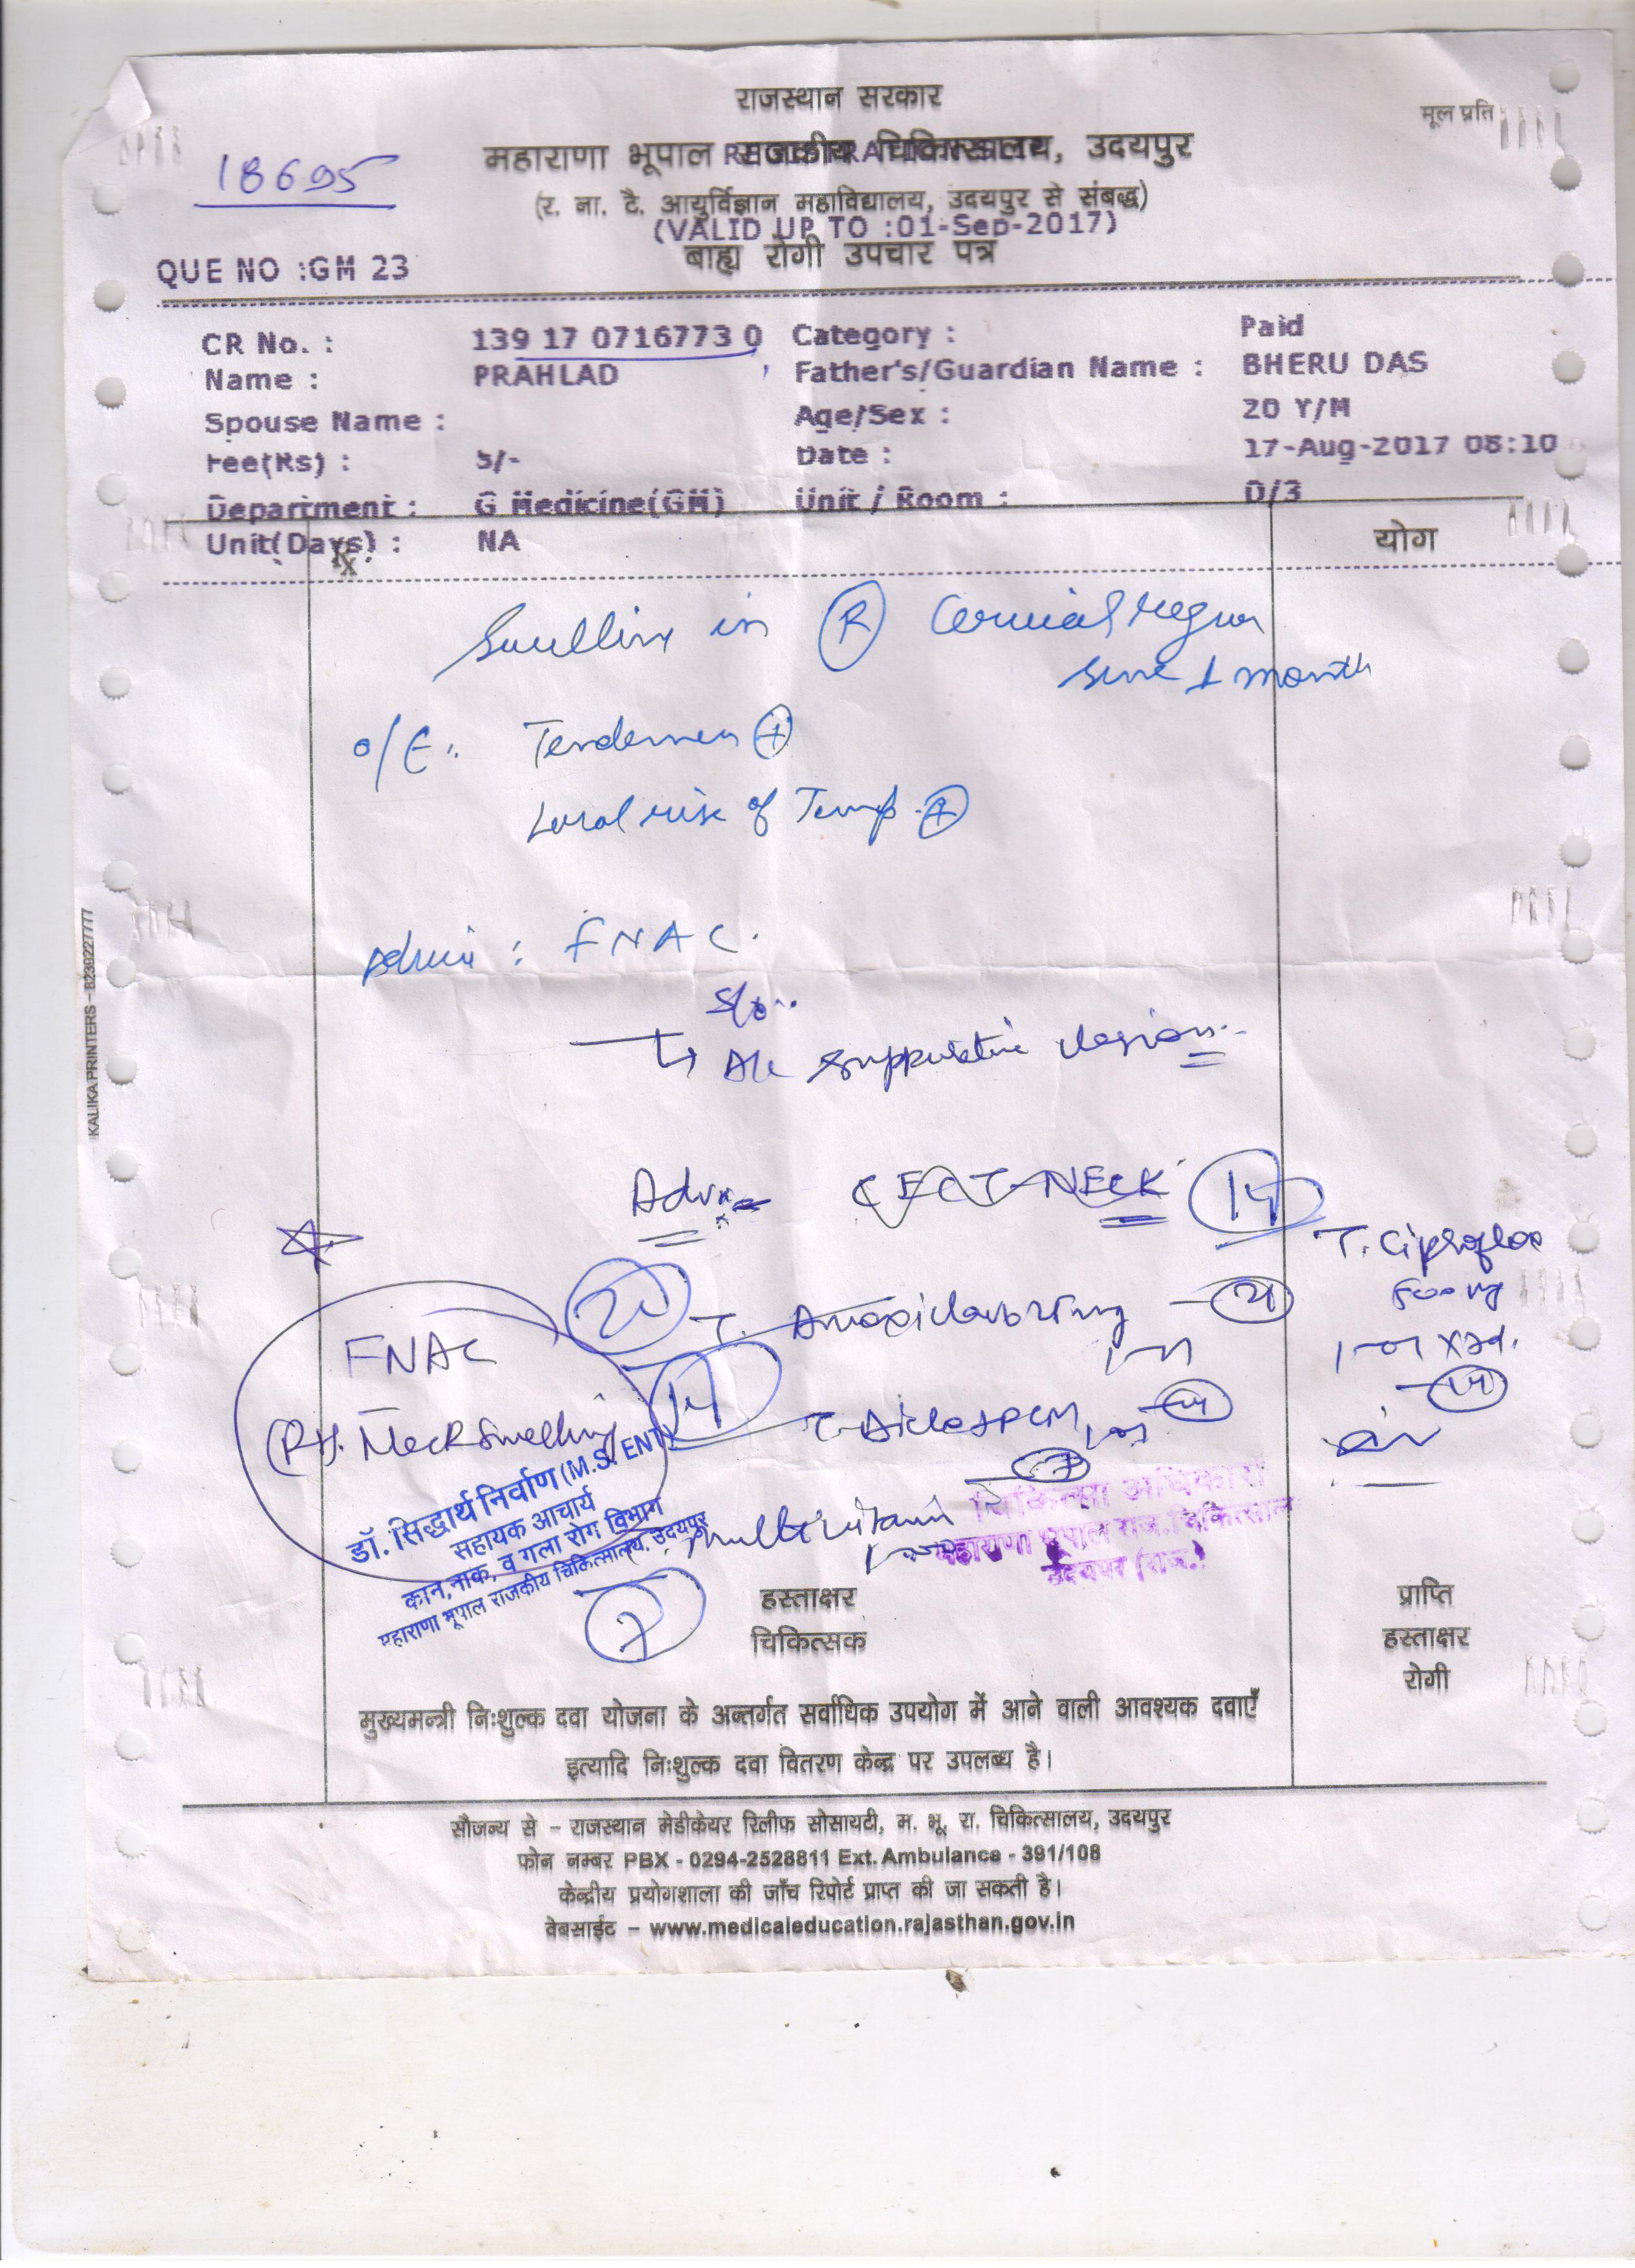 राजस्थान सरकार
मूल प्रति
18695
महाराणा भूपाल राजकीय चिकित्सालय, उदयपुर
(र. ना. टै. आयुर्विज्ञान महाविद्यालय, उदयपुर से संबद्ध)
(VALID UP TO :01-Sep-2017)
बाह्य रोगी उपचार पत्र
QUE NO :GM 23
CR No. : 139 17 0716773 0 Category : Paid
Name : PRAHLAD Father's/Guardian Name : BHERU DAS
Spouse Name : Age/Sex : 20 Y/M
Fee(Rs) : 5/- Date : 17-Aug-2017 08:10
Department : G Medicine(GM) Unit / Room : D/3
Unit(Days) : NA
Rx
योग
Swelling in R Cervical region
since 1 month
O/E: Tenderness +
Local rise of Temp. +
Advice : FNAC.
S/o
Ac suppurative lesion
Adv CECT NECK 14
T. Ciproflox
500 mg
T. Amoxiclav 21
FNAC
14
(Rt. Neck Swelling
T. Diclo+PCM
Multivitamin
7
डॉ. सिद्धार्थ निर्वाण (M.S. ENT)
सहायक आचार्य
कान, नाक, व गला रोग विभाग
महाराणा भूपाल राजकीय चिकित्सालय, उदयपुर
चिकित्सा अधिकारी
महाराणा भूपाल राज. चिकित्सालय
उदयपुर (राज.)
हस्ताक्षर
चिकित्सक
प्राप्ति
हस्ताक्षर
रोगी
मुख्यमन्त्री निःशुल्क दवा योजना के अन्तर्गत सर्वाधिक उपयोग में आने वाली आवश्यक दवाएँ
इत्यादि निःशुल्क दवा वितरण केन्द्र पर उपलब्ध है।
सौजन्य से – राजस्थान मेडीकेयर रिलीफ सोसायटी, म. भू. रा. चिकित्सालय, उदयपुर
फोन नम्बर PBX - 0294-2528811 Ext. Ambulance - 391/108
केन्द्रीय प्रयोगशाला की जाँच रिपोर्ट प्राप्त की जा सकती है।
वेबसाईट – www.medicaleducation.rajasthan.gov.in
KALIKA PRINTERS – 8239227777